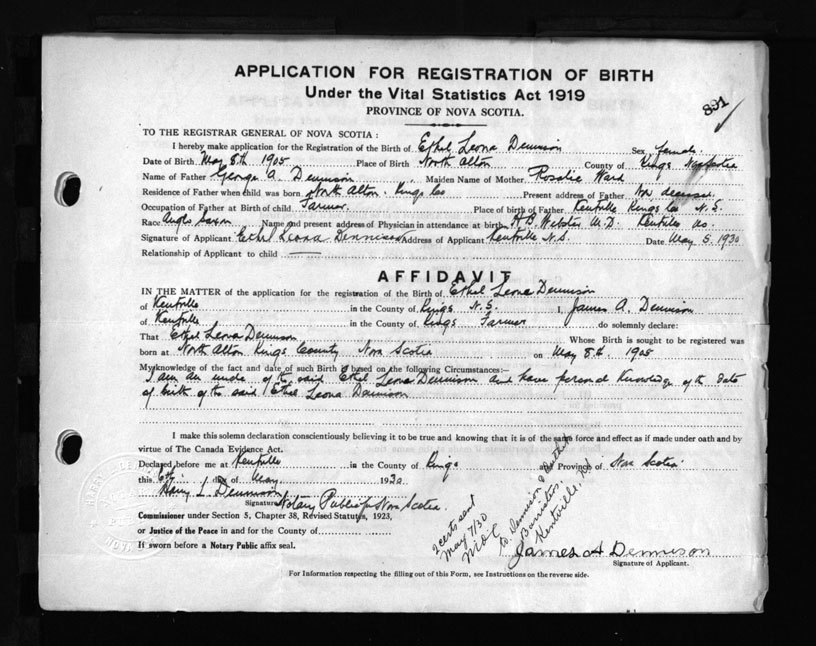 APPLICATION FOR REGISTRATION OF BIRTH
Under the Vital Statistics Act 1919
PROVINCE OF NOVA SCOTIA.
891
TO THE REGISTRAR GENERAL OF NOVA SCOTIA :
I hereby make application for the Registration of the Birth of Ethel Leona Dennison Sex female
Date of Birth May 8th 1905 Place of Birth North Alton County of Kings
Name of Father George A. Dennison Maiden Name of Mother Rosalie Ward
Residence of Father when child was born North Alton. Kings Co Present address of Father Now deceased.
Occupation of Father at Birth of child Farmer. Place of birth of Father Kentville Kings Co N.S.
Race Anglo Saxon Name and present address of Physician in attendance at birth H.B. Webster M.D. Kentville NS.
Signature of Applicant Ethel Leona Dennison Address of Applicant Kentville N.S. Date May 5, 1930
Relationship of Applicant to child
AFFIDAVIT
IN THE MATTER of the application for the registration of the Birth of Ethel Leona Dennison
of Kentville in the County of Kings N.S. I, James A. Dennison
of Kentville in the County of Kings Farmer do solemnly declare:
That Ethel Leona Dennison Whose Birth is sought to be registered was
born at North Alton Kings County Nova Scotia on May 8th. 1905
My knowledge of the fact and date of such Birth is based on the following Circumstances:–
I am an uncle of the said Ethel Leona Dennison and have personal knowledge of the date
of birth of the said Ethel Leona Dennison
I make this solemn declaration conscientiously believing it to be true and knowing that it is of the same force and effect as if made under oath and by
virtue of The Canada Evidence Act.
Declared before me at Kentville in the County of Kings Province of Nova Scotia
this 6th day of May 1930
Harry L. Dennison
Signature Notary Public for Nova Scotia.
Commissioner under Section 5, Chapter 38, Revised Statutes, 1923,
or Justice of the Peace in and for the County of
If sworn before a Notary Public affix seal.
2 certs sent
May 7/30
to Dennison &
Barristers,
Kentville, N.S.
James A Dennison
Signature of Applicant.
For Information respecting the filling out of this Form, see Instructions on the reverse side.